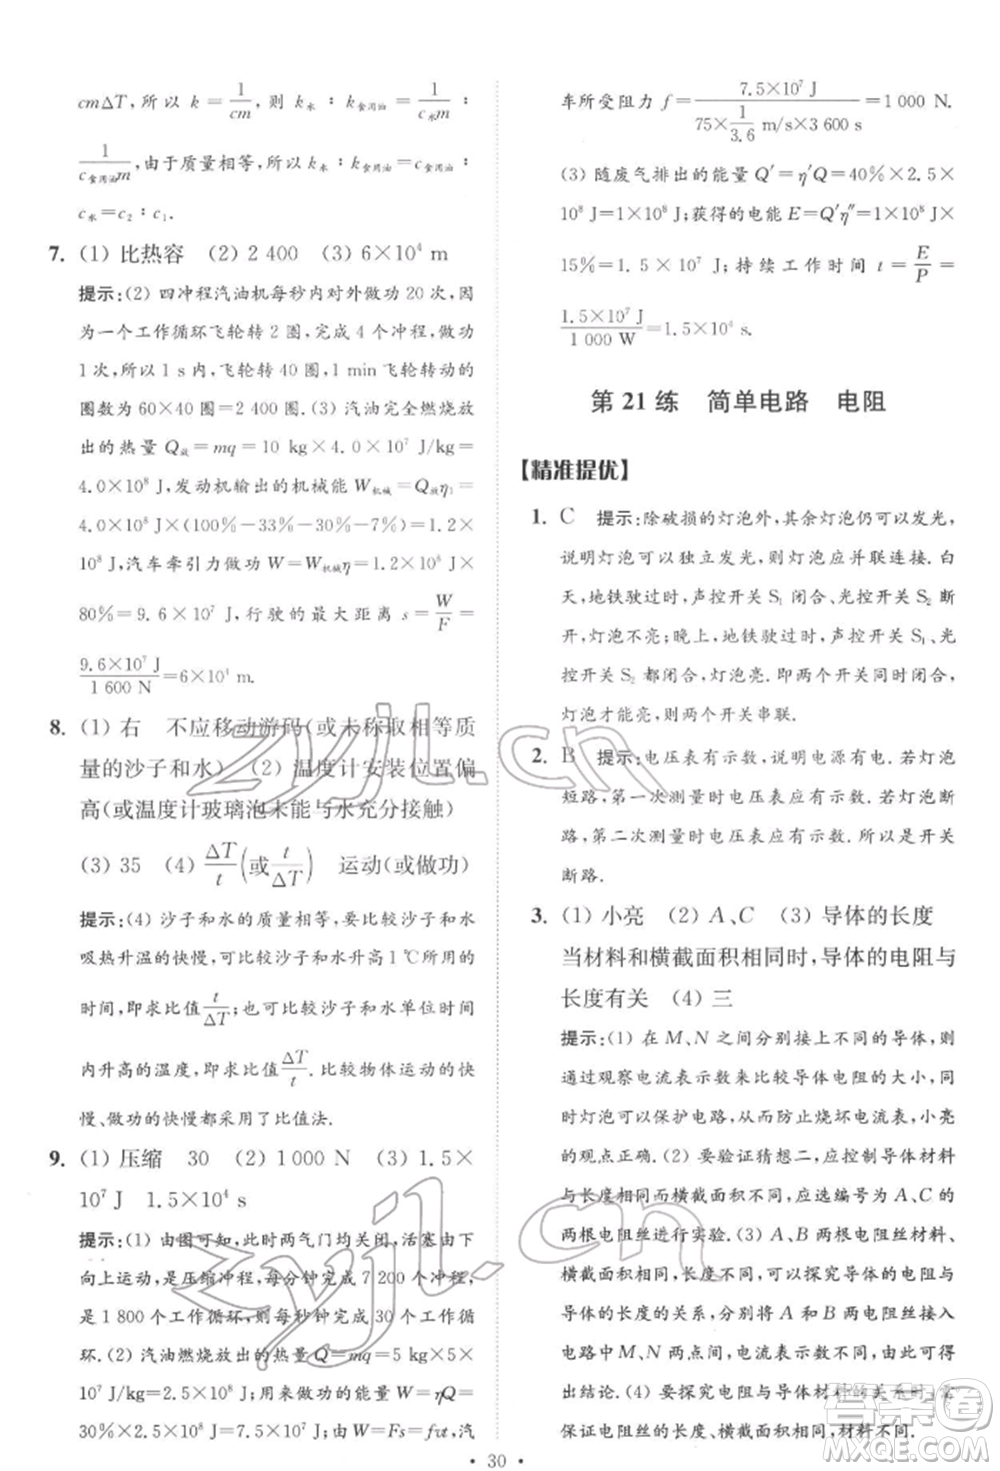 cmΔT,所以 k = 1/cm,则 k水 : k食用油 = 1/c水m :
1/c食用油m,由于质量相等,所以 k水 : k食用油 = c食用油 :
c水 = c₂ : c₁.
7. (1) 比热容 (2) 2 400 (3) 6×10⁴ m
提示:(2) 四冲程汽油机每秒内对外做功 20 次,因
为一个工作循环飞轮转 2 圈,完成 4 个冲程,做功
1 次,所以 1 s 内,飞轮转 40 圈,1 min 飞轮转动的
圈数为 60×40 圈=2 400 圈.(3) 汽油完全燃烧放
出的热量 Q放 = mq = 10 kg×4.0×10⁷ J/kg =
4.0×10⁸ J,发动机输出的机械能 W机械 = Q放η₁ =
4.0×10⁸ J×(100%－33%－30%－7%)=1.2×
10⁸ J,汽车牵引力做功 W=W机械η=1.2×10⁸ J×
80%=9.6×10⁷ J,行驶的最大距离 s = W/F =
9.6×10⁷ J/1 600 N=6×10⁴ m.
8. (1) 右 不应移动游码(或未称取相等质
量的沙子和水) (2) 温度计安装位置偏
高(或温度计玻璃泡未能与水充分接触)
(3) 35 (4) ΔT/t(或 t/ΔT) 运动(或做功)
提示:(4) 沙子和水的质量相等,要比较沙子和水
吸热升温的快慢,可以比较沙子和水升高1 ℃所用的
时间,即求比值 t/ΔT;也可以比较沙子和水单位时间
内升高的温度,即求比值 ΔT/t. 比较物体运动的快
慢、做功的快慢都采用了比值法.
9. (1) 压缩 30 (2) 1 000 N (3) 1.5×
10⁷ J 1.5×10⁴ s
提示:(1) 由图可知,此时两气门均关闭,活塞由下
向上运动,是压缩冲程,每分钟完成 7 200 个冲程,
是 1 800 个工作循环,则每秒钟完成 30 个工作循
环.(2) 汽油燃烧放出的热量 Q=mq=5 kg×5×
10⁷ J/kg=2.5×10⁸ J;用来做功的能量 W = ηQ =
30%×2.5×10⁸ J=7.5×10⁷ J;由 W=Fs=fvt,汽
车所受阻力 f = 7.5×10⁷ J/(75×1/3.6 m/s×3 600 s) = 1 000 N.
(3) 随废气排出的能量 Q′=η′Q=40%×2.5×
10⁸ J=1×10⁸ J;获得的电能 E=Q′η″=1×10⁸ J×
15%=1.5×10⁷ J;持续工作时间 t = E/P =
1.5×10⁷ J/1 000 W=1.5×10⁴ s.
第 21 练 简单电路 电阻
【精准提优】
1. C 提示:除破损的灯泡外,其余灯泡仍可以发光,
说明灯泡可以独立发光,所以灯泡应并联连接.白
天,地铁驶过时,声控开关 S₁ 闭合、光控开关 S₂ 断
开,灯泡不亮;晚上,地铁驶过时,声控开关 S₁、光
控开关 S₂ 都闭合,灯泡亮.即两个开关都闭合时,
灯泡才能亮,则两个开关串联.
2. B 提示:电压表有示数,说明电源有电.若灯泡
短路,第一次测量时电压表应有示数.若灯泡断
路,第二次测量时电压表应有示数.所以是开关
断路.
3. (1) 小亮 (2) A、C (3) 导体的长度
当材料和横截面积相同时,导体的电阻与
长度有关 (4) 三
提示:(1) 在 M、N 之间分别接上不同的导体,则
通过观察电流表示数来比较导体电阻的大小,同
时灯泡可以保护电路,从而防止烧坏电流表,小亮
的方法更好.(2) 要验证猜想二,应控制导体材料
与长度相同而横截面积不同,应选编号为 A、C 的
两根电阻丝进行实验.(3) 两根电阻丝材料、
横截面积相同,长度不同,可以探究导体的电阻与
导体的长度的关系,分别将 A 和 B 两电阻丝接入
电路图中 M、N 两点间,电流表示数不同,由此得
出结论.(4) 要探究电阻与导体材料的关系时,要
保证电阻丝的长度、横截面积相同,材料不同.
zyjl.cn
zyjl.cn
答案圈
MXQE.COM
• 30 •